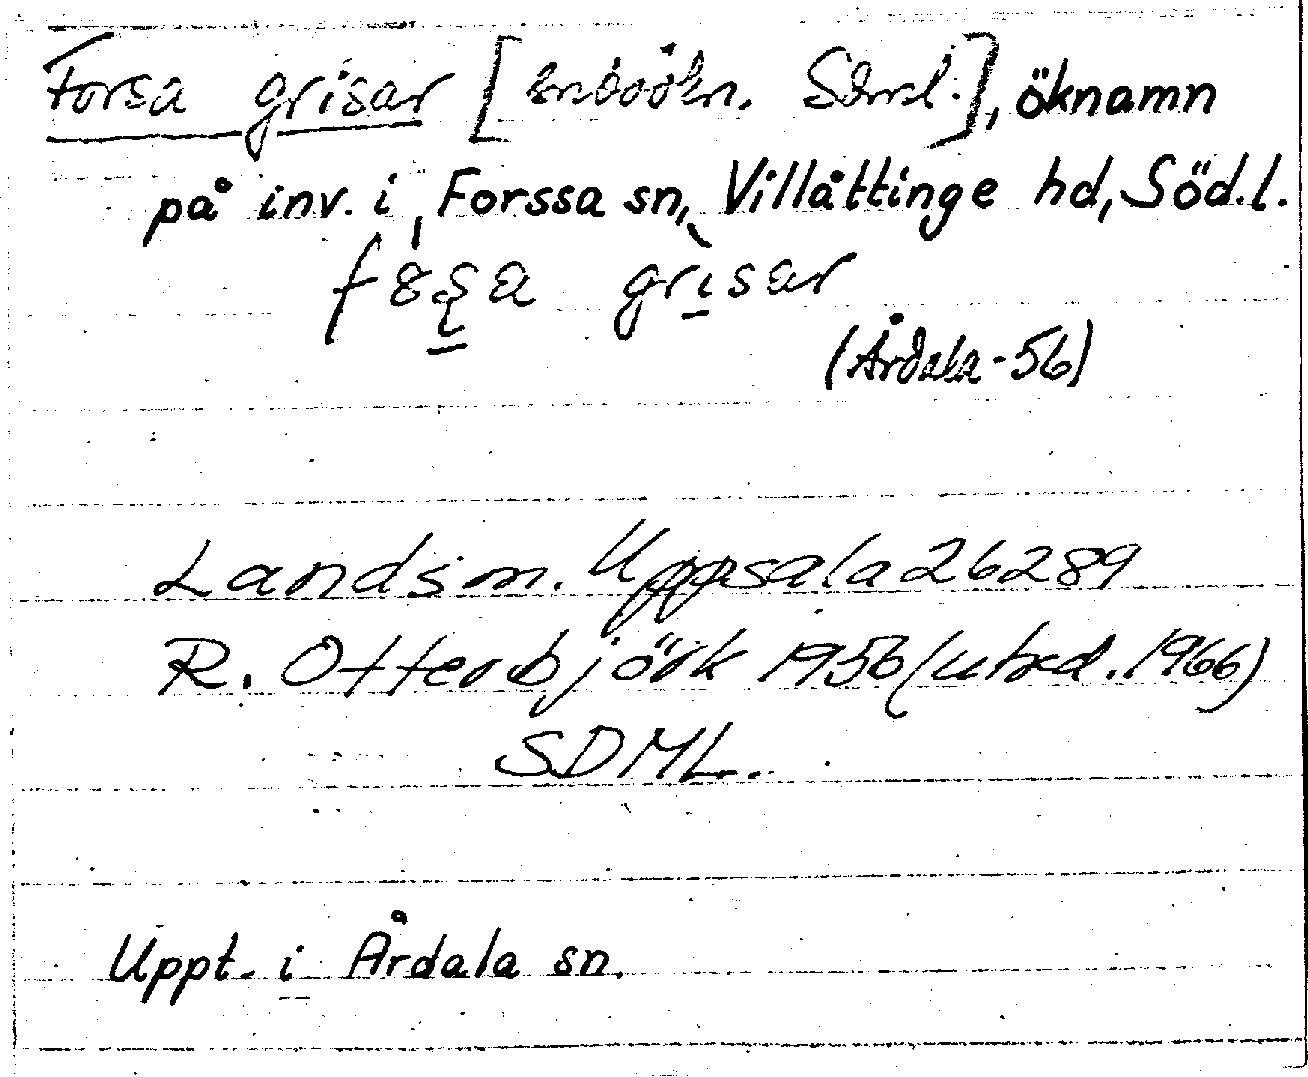 Forsa grisar [snboökn. Sdml.], öknamn
på inv. i Forssa sn, Villåttinge hd, Söd.l.
grisar
(Årdala-56)
Landsm. Uppsala 26289
R. Otterbjörk 1956 (utxd. 1966)
SDML.
Uppt. i Årdala sn.